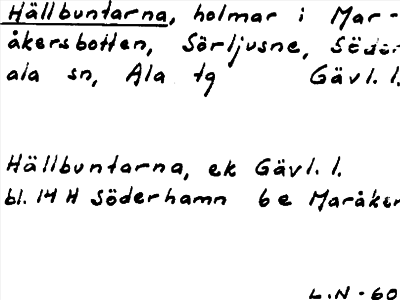 Hällbuntarna, holmar i Mar-
åkersbotten, Sörljusne, Söder-
ala sn, Ala tg Gävl. l.
Hällbuntarna, ek Gävl. l.
bl. 14 H Söderhamn 6e Maråker
L.N - 60